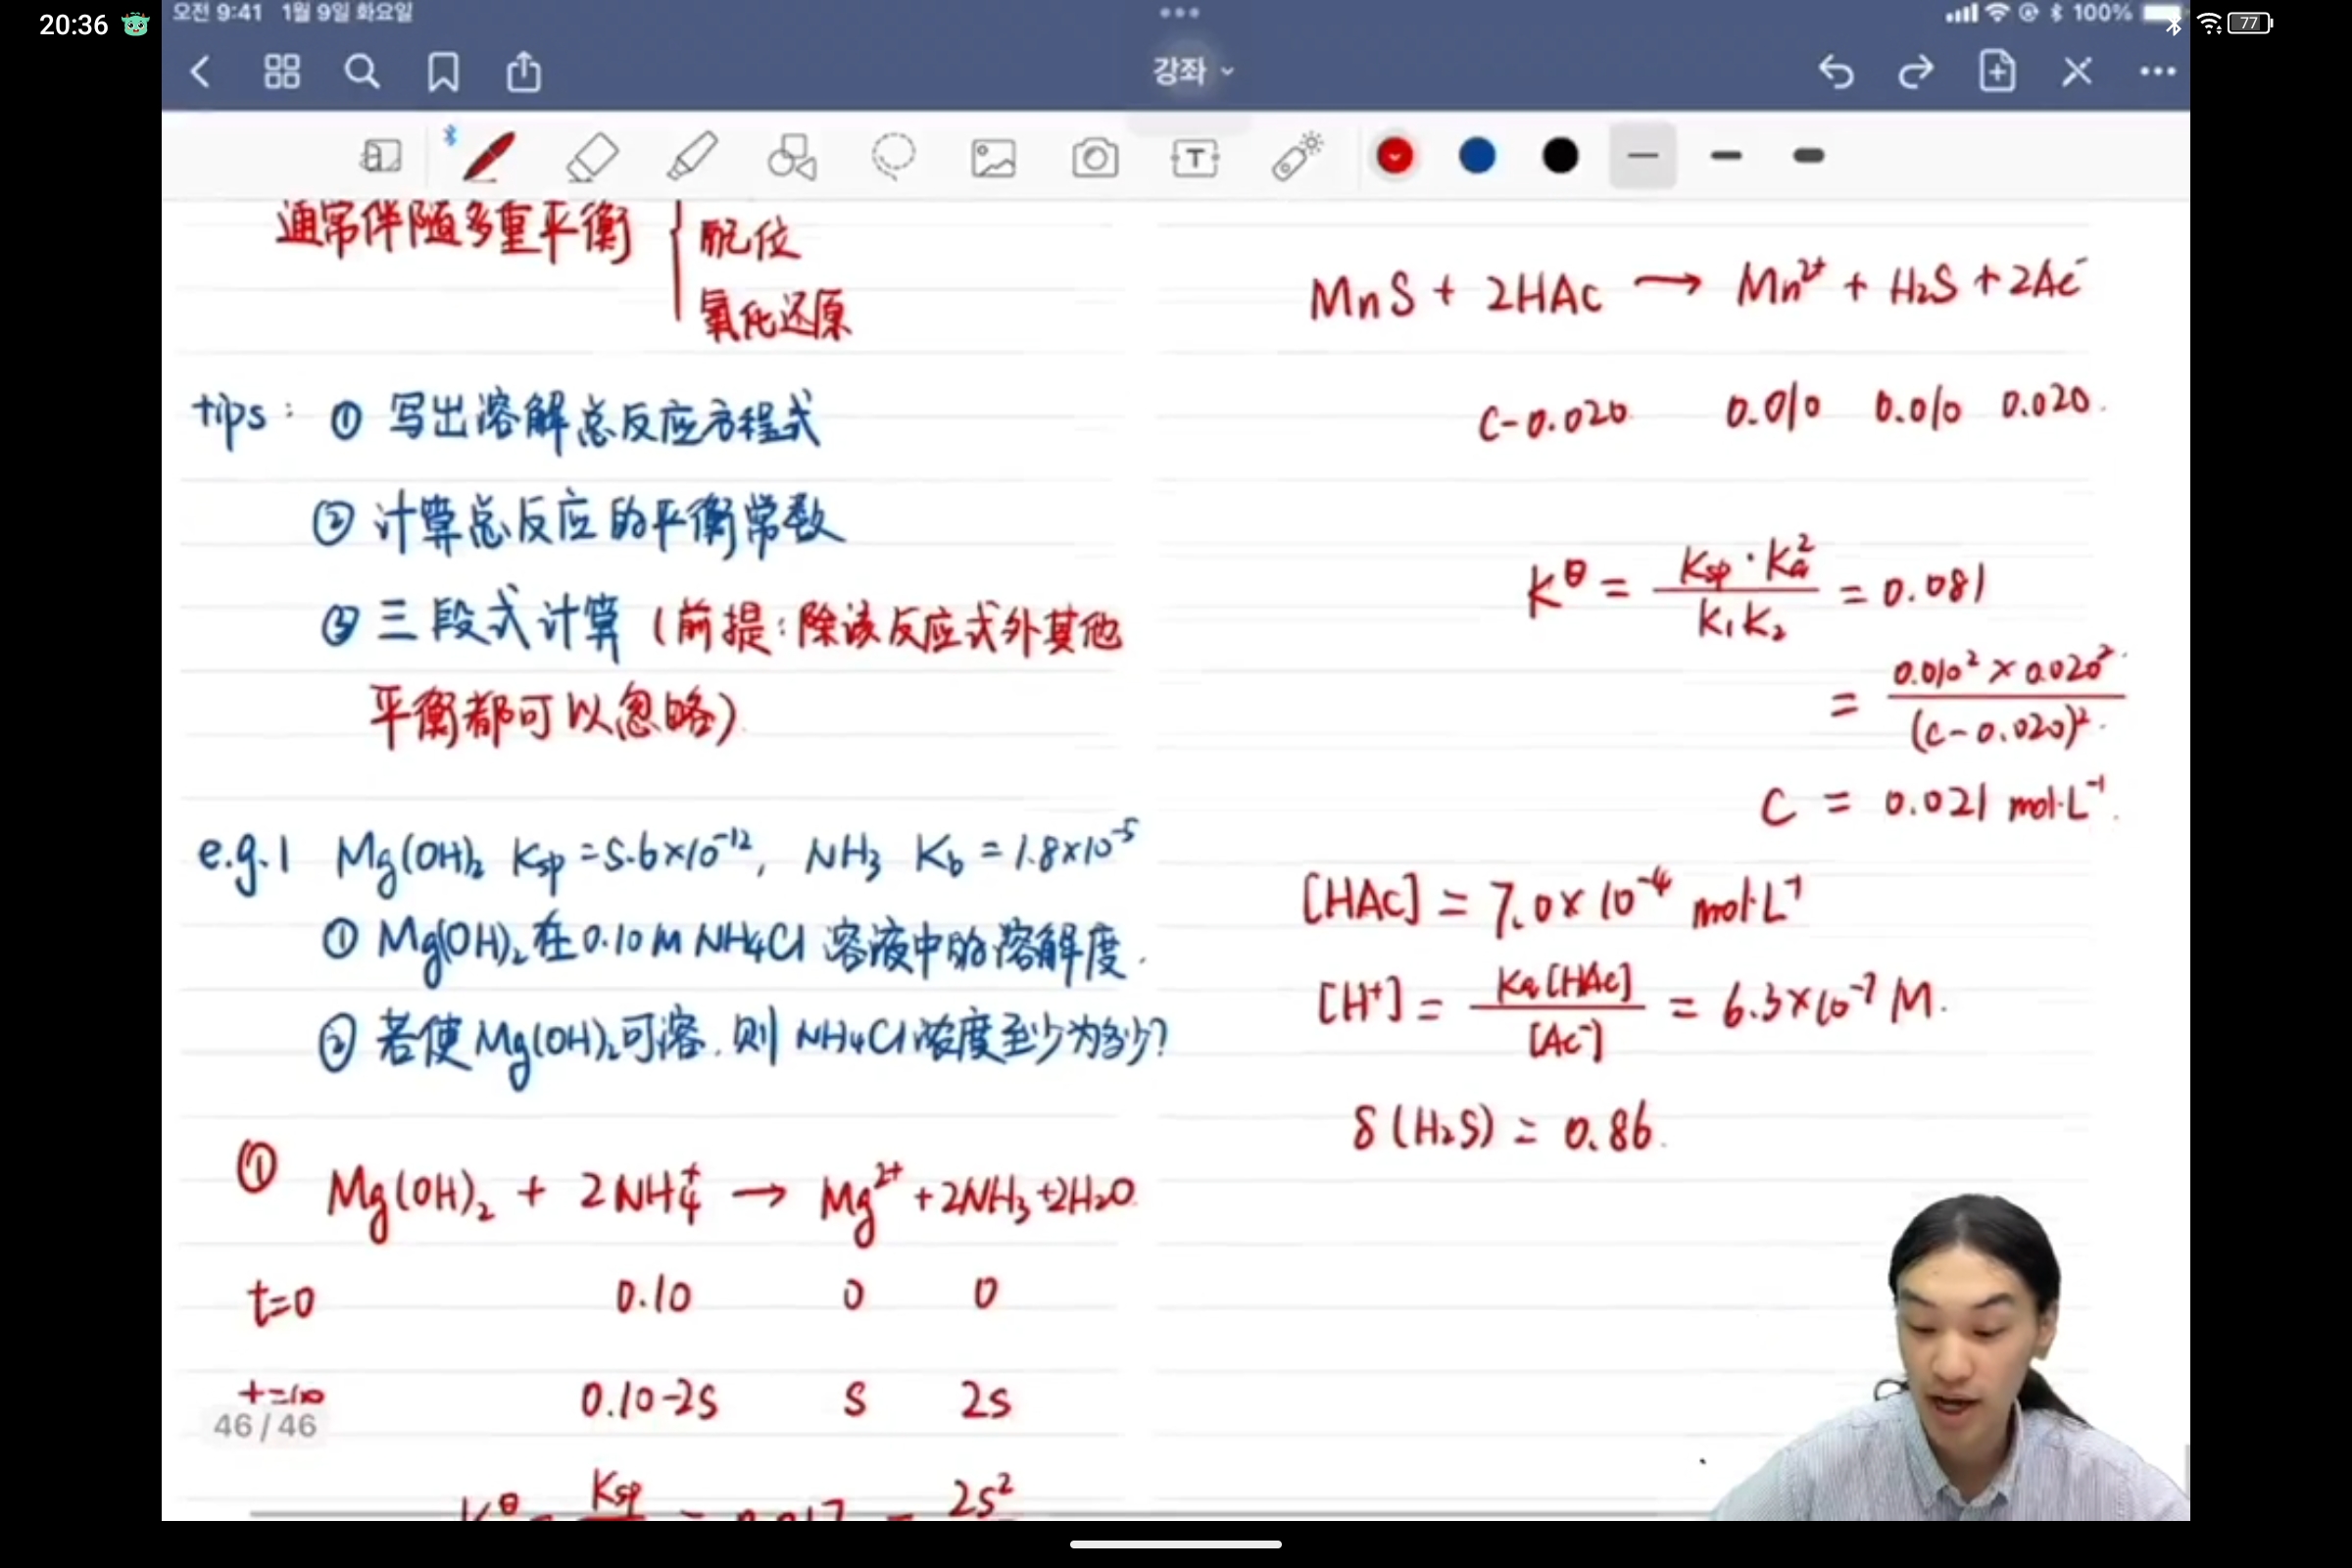 20:36
77
오전 9:41 1월 9일 화요일
100%
강좌
通常伴随多重平衡 { 配位
氧化还原
tips: ① 写出溶解总反应方程式
② 计算总反应的平衡常数
③ 三段式计算 (前提:除该反应式外其他
平衡都可以忽略)
e.g.1 Mg(OH)₂ Ksp = 5.6×10⁻¹², NH₃ Kb = 1.8×10⁻⁵
① Mg(OH)₂在0.10M NH₄Cl 溶液中的溶解度.
② 若使Mg(OH)₂可溶,则 NH₄Cl浓度至少为多少?
① Mg(OH)₂ + 2NH₄⁺ → Mg²⁺ + 2NH₃ + 2H₂O
t=0 0.10 0 0
t=∞ 0.10-2s s 2s
46 / 46
Kᶿ = Ksp = 0.017 = 2s²
MnS + 2HAc → Mn²⁺ + H₂S + 2Ac⁻
c-0.020 0.010 0.010 0.020
Kᶿ = Ksp·Ka² / K₁K₂ = 0.081
= 0.010² × 0.020² / (c-0.020)²
c = 0.021 mol·L⁻¹
[HAc] = 7.0×10⁻⁴ mol·L⁻¹
[H⁺] = Ka[HAc] / [Ac⁻] = 6.3×10⁻⁷ M.
δ(H₂S) = 0.86.